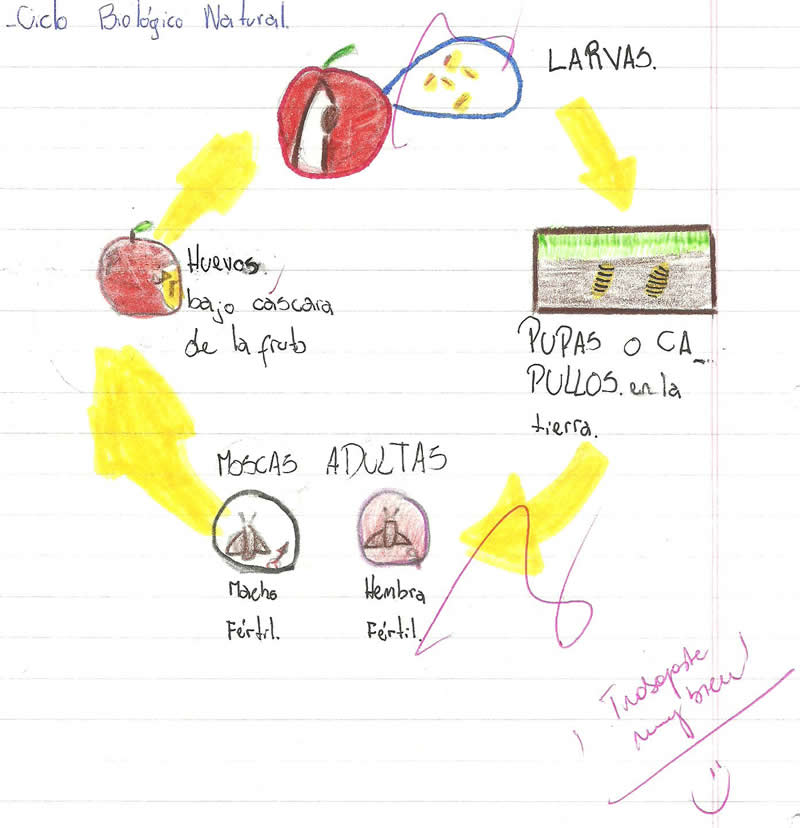 -Ciclo Biológico Natural.
LARVAS.
HUEVOS.
bajo cáscara
de la fruto
PUPAS O CA_
PULLOS. en la
tierra.
MOSCAS ADULTAS
Macho
Fértil.
Hembra
Fértil.
¡ Trabajaste
muy bien!